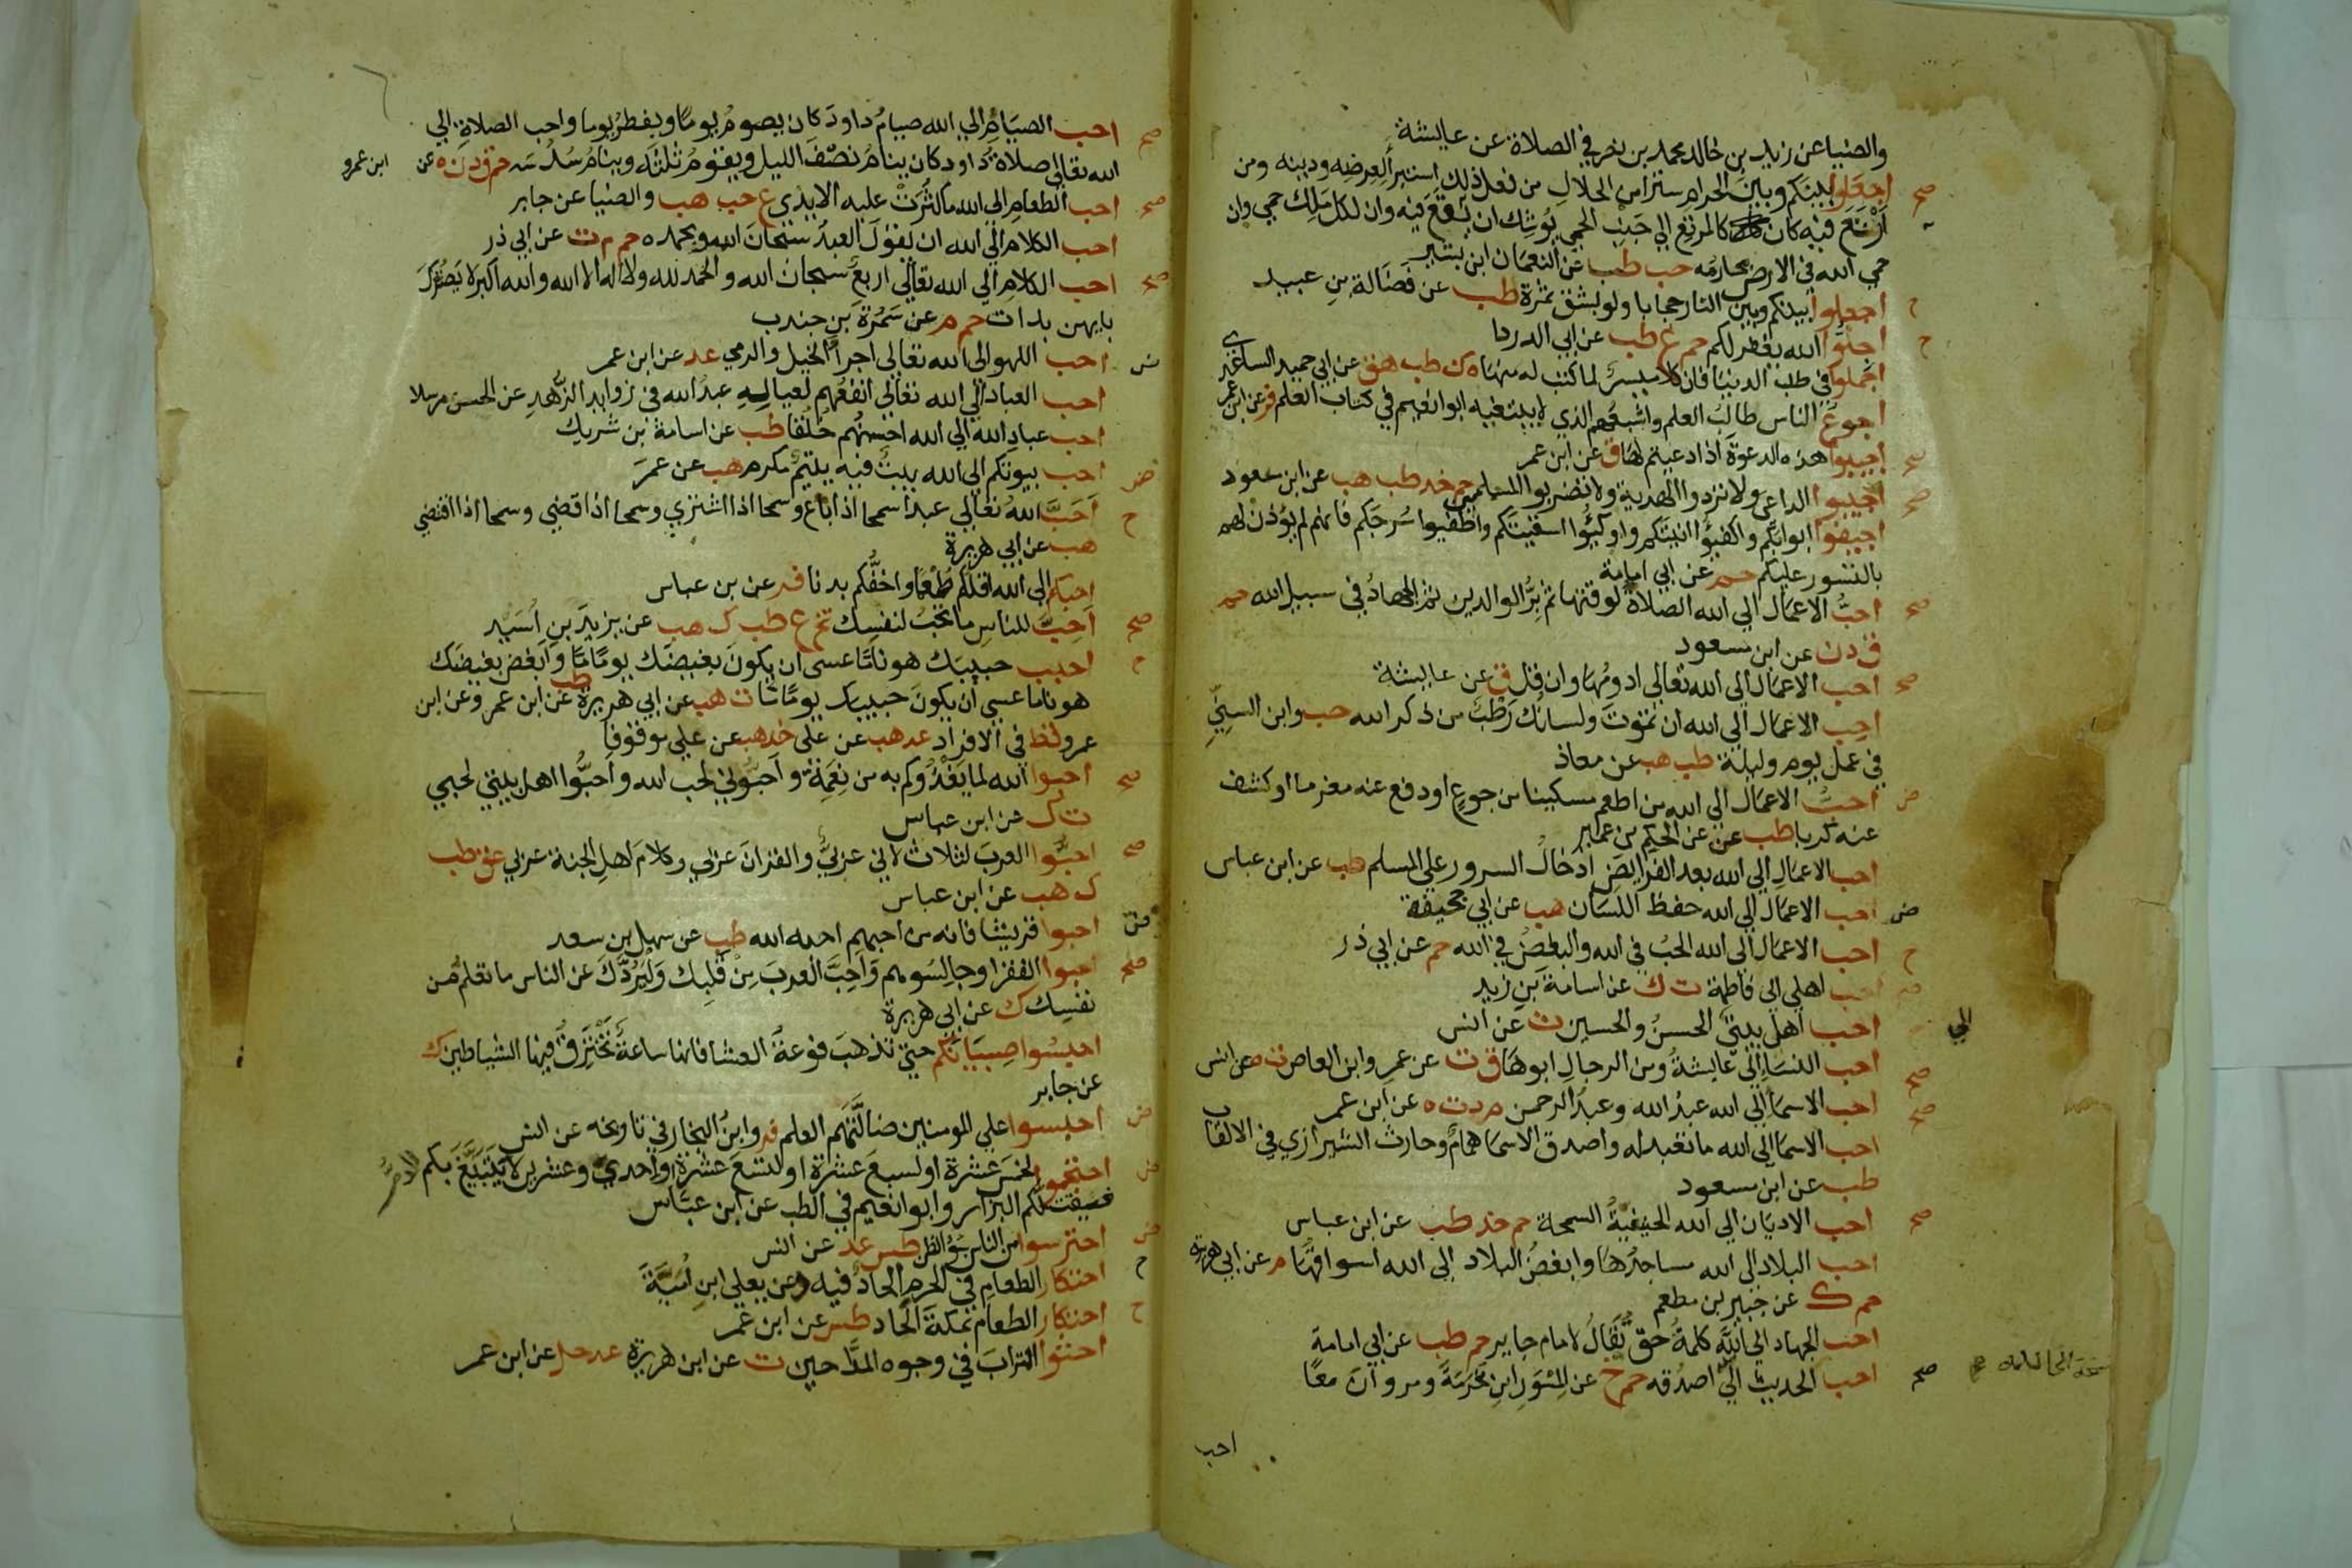 والضيا عن زيد بن خالد محمد بن نصر في الصلاة عن عايشة
صح اجعلوا بينكم وبين الحرام سترا من الحلال من فعل ذلك استبرأ لعرضه ودينه ومن
ارتع فيه كان كالمرتع الي جنب الحمي يوشك ان يقع فيه وان لكل ملك حمي وان
حمي الله في الارض محارمه حب طب عن النعمان ابن بشير
ح اجعلوا بينكم وبين النار حجابا ولو بشق تمرة طب عن فضالة بن عبيد
ح اجلوا الله يغفر لكم حم ع طب عن ابي الدردا
اجملوا في طلب الدنيا فان كلا ميسر لما كتب له منها ه ك طب هق عن ابي حميد الساعدي
اجوع الناس طالب العلم واشبعهم الذي لا يبتغيه ابو نعيم في كتاب العلم فر عن ابن عمر
صح اجيبوا هذه الدعوة اذا دعيتم لها ق عن ابن عمر
صح اجيبوا الداعي ولا تردوا الهدية ولا تضربوا المسلمين حم خد طب هب عن ابن مسعود
اجيفوا ابوابكم واكفيؤا انيتكم واوكيؤا اسقيتكم واطفيوا سرجكم فانهم لم يؤذن لهم
بالتسور عليكم حم عن ابي امامة
صح احب الاعمال الي الله الصلاة لوقتها ثم بر الوالدين ثم الجهاد في سبيل الله حم
ق د ن عن ابن مسعود
صح احب الاعمال الي الله تعالي ادومها وان قل ق عن عايشة
احب الاعمال الي الله ان تموت ولسانك رطب من ذكر الله حب وابن السني
في عمل يوم وليلة طب هب عن معاذ
ض احب الاعمال الي الله من اطعم مسكينا من جوع او دفع عنه مغرما او كشف
عنه كربا طب عن عن الحكم بن عمير
احب الاعمال الي الله بعد الفرايض ادخال السرور علي المسلم طب عن ابن عباس
ض احب الاعمال الي الله حفظ اللسان هب عن ابي جحيفة
ح احب الاعمال الي الله الحب في الله والبغض في الله حم عن ابي ذر
صح احب اهلي الي فاطمة ت ك عن اسامة بن زيد
احب اهل بيتي الحسن والحسين ت عن انس
الي
صح احب النساء الي عايشة ومن الرجال ابوها ق ت عن عمرو ابن العاص ت ه عن انس
صح احب الاسما الي الله عبد الله وعبد الرحمن م د ت ه عن ابن عمر
احب الاسما الي الله ما تعبد له واصدق الاسما همام وحارث الشيرازي في الالقاب
طب عن ابن مسعود
صح احب الاديان الي الله الحنيفية السمحة حم خد طب عن ابن عباس
احب البلاد الي الله مساجدها وابغض البلاد الي الله اسواقها م عن ابي هريرة
حم ك عن جبير بن مطعم
احب الجهاد الي الله كلمة حق تقال لامام جاير حم طب عن ابي امامة
صح احب الحديث الي اصدقه حم خ عن المسور ابن مخرمة ومروان معا
احب
صح احب الصيام الي الله صيام داود كان يصوم يوما ويفطر يوما واحب الصلاة الي
الله تعالي صلاة داود كان ينام نصف الليل ويقوم ثلثه وينام سدسه حم ق د ن ه عن ابن عمرو
صح احب الطعام الي الله ما كثرت عليه الايدي ع حب هب والضيا عن جابر
احب الكلام الي الله ان يقول العبد سبحان الله وبحمده حم م ت عن ابي ذر
صح احب الكلام الي الله تعالي اربع سبحان الله والحمد لله ولا اله الا الله والله اكبر لا يضرك
بايهن بدات حم م عن سمرة بن جندب
ض احب اللهو الي الله تعالي اجرا الخيل والرمي عد عن ابن عمر
احب العباد الي الله تعالي انفعهم لعياله عبد الله في زوايد الزهد عن الحسن مرسلا
احب عباد الله الي الله احسنهم خلقا طب عن اسامة بن شريك
ض احب بيوتكم الي الله بيت فيه يتيم مكرم هب عن عمر
ح احب الله تعالي عبدا سمحا اذا باع وسمحا اذا اشتري وسمحا اذا قضي وسمحا اذا اقتضي
هب عن ابي هريرة
احبكم الي الله اقلكم طعما واخفكم بدنا فر عن بن عباس
صح احب للناس ما تحب لنفسك تخ ع طب ك هب عن يزيد بن اسيد
ح احبب حبيبك هونا ما عسي ان يكون بغيضك يوما ما وابغض بغيضك
هونا ما عسي ان يكون حبيبك يوما ما ت هب عن ابي هريرة طب عن ابن عمر وعن ابن
عمرو قط في الافراد عد هب عن علي خد هب عن علي موقوفا
صح احبوا الله لما يغذوكم به من نعمه واحبوني لحب الله واحبوا اهل بيتي لحبي
ت ك عن ابن عباس
صح احبوا العرب لثلاث لاني عربي والقران عربي وكلام اهل الجنة عربي عق طب
ك هب عن ابن عباس
ض احبوا قريشا فانه من احبهم احبه الله طب عن سهل بن سعد
صح احبوا الفقرا وجالسوهم واحب العرب من قلبك وليردك عن الناس ما تعلم من
نفسك ك عن ابي هريرة
احبسوا صبيانكم حتي تذهب فوعة العشا فانها ساعة تخترق فيها الشياطين ك
عن جابر
ض احبسوا علي المومنين ضالتهم العلم فر وابن النجار في تاريخه عن انس
ض احتجموا لخمس عشرة او لسبع عشرة او لتسع عشرة او احدي وعشرين لا يتبيغ بكم الدم
فيقتلكم البزار وابو انعيم في الطب عن ابن عباس
ض احترسوا من الناس بسؤ الظن طس عد عن انس
ح احتكار الطعام في الحرم الحاد فيه د عن يعلي ابن امية
ح احتكار الطعام بمكة الحاد طس عن ابن عمر
احثوا التراب في وجوه المداحين ت عن ابن هريرة عد حل عن ابن عمر